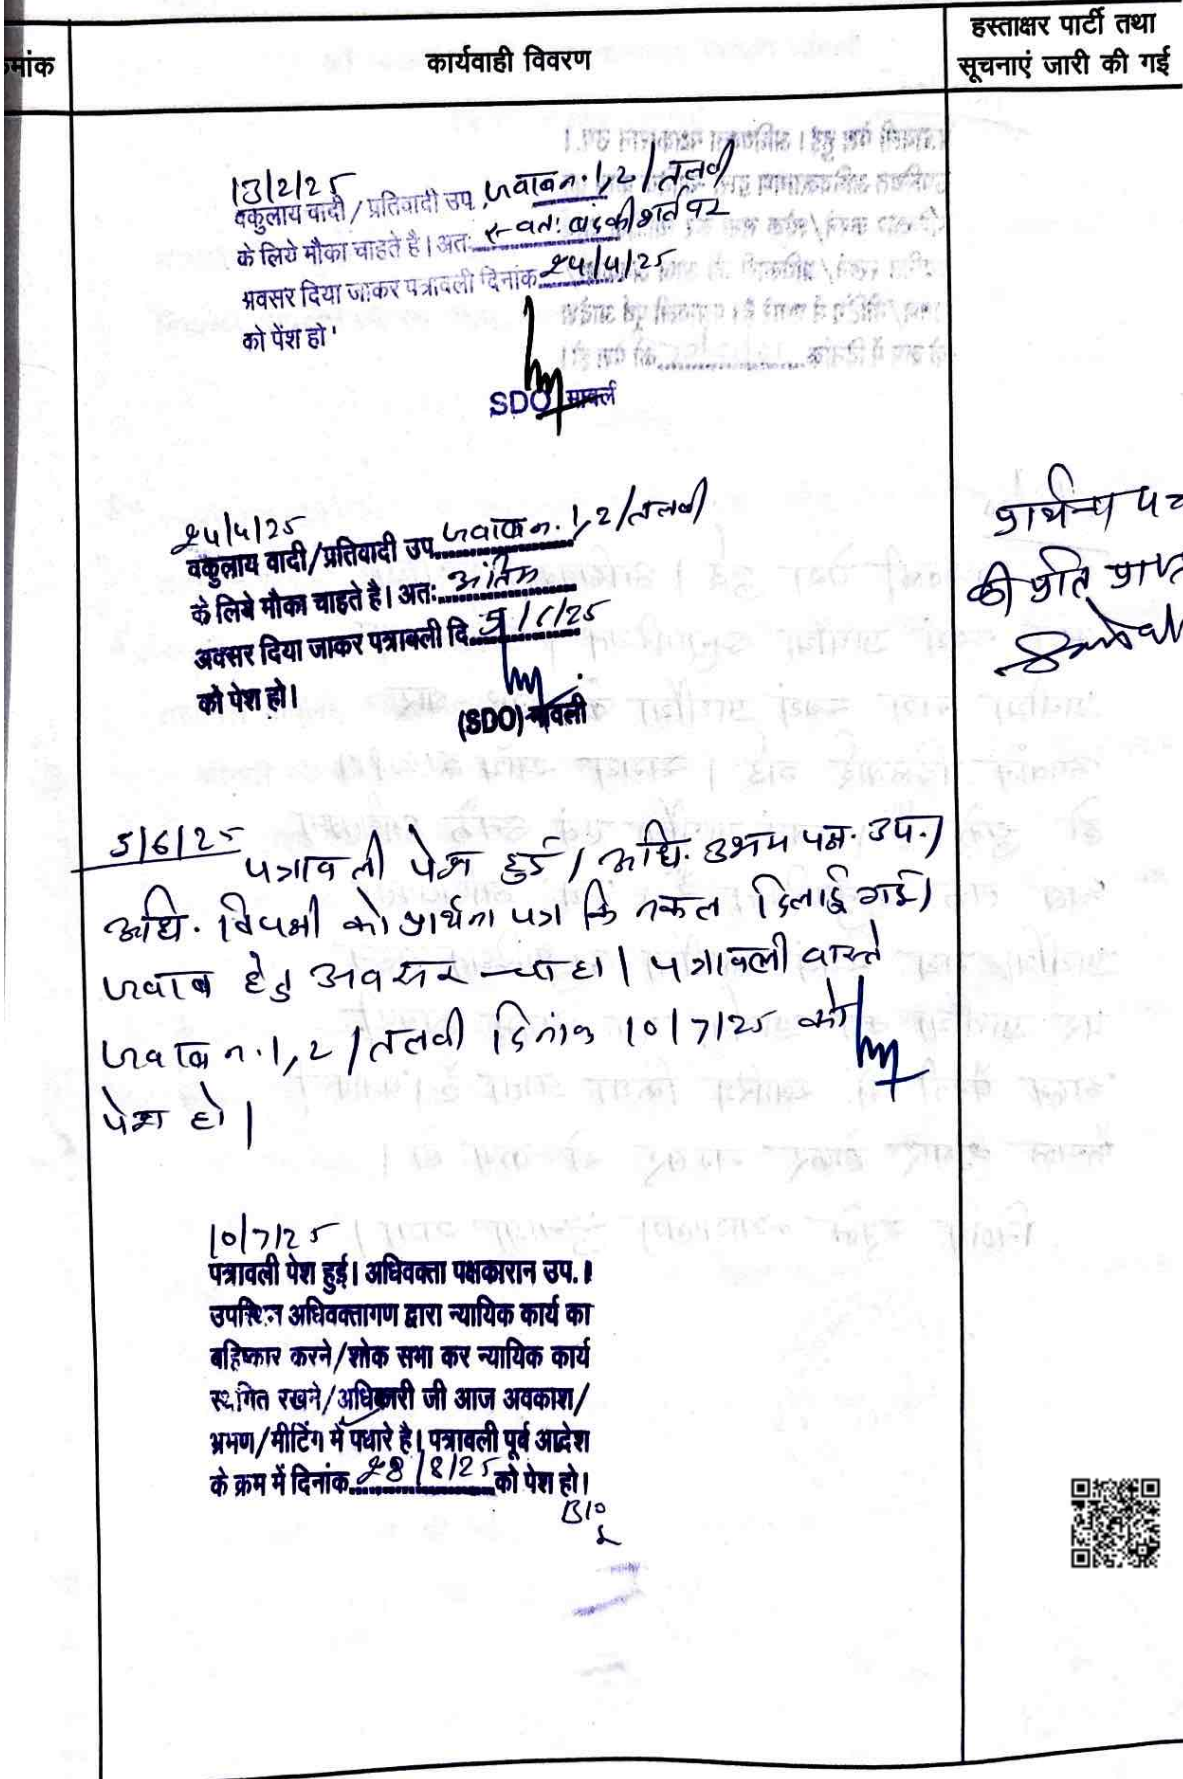 मांक
कार्यवाही विवरण
हस्ताक्षर पार्टी तथा
सूचनाएं जारी की गई
13/2/25
वकुलाय वादी / प्रतिवादी उप. जवाब न. 1,2/तलवी
के लिये मौका चाहते है। अतः स्वतः बंद की शर्त पर
अवसर दिया जाकर पत्रावली दिनांक 24/4/25
को पेंश हो
SDO मावली
24/4/25
वकुलाय वादी/प्रतिवादी उप. जवाब न. 1,2/तलवी
के लिये मौका चाहते है। अतः अंतिम
अवसर दिया जाकर पत्रावली दि.
को पेश हो।
(SDO) मावली
प्रार्थना पत्र
की प्रति प्राप्त
5/6/25 पत्रावली पेश हुई। अधि. उभय पक्ष. उप.।
अधि. विपक्षी को प्रार्थना पत्र कि नकल दिलाई गई।
जवाब हेतु अवसर चाहा। पत्रावली वास्ते
जवाब न. 1,2/तलवी दिनांक 10/7/25 को
पेश हो।
10/7/25
पत्रावली पेश हुई। अधिवक्ता पक्षकारान उप.।
उपस्थित अधिवक्तागण द्वारा न्यायिक कार्य का
बहिष्कार करने/शोक सभा कर न्यायिक कार्य
स्थगित रखने/अधिकारी जी आज अवकाश/
भ्रमण/मीटिंग में पधारे है। पत्रावली पूर्व आदेश
के क्रम में दिनांक 28/8/25 को पेश हो।